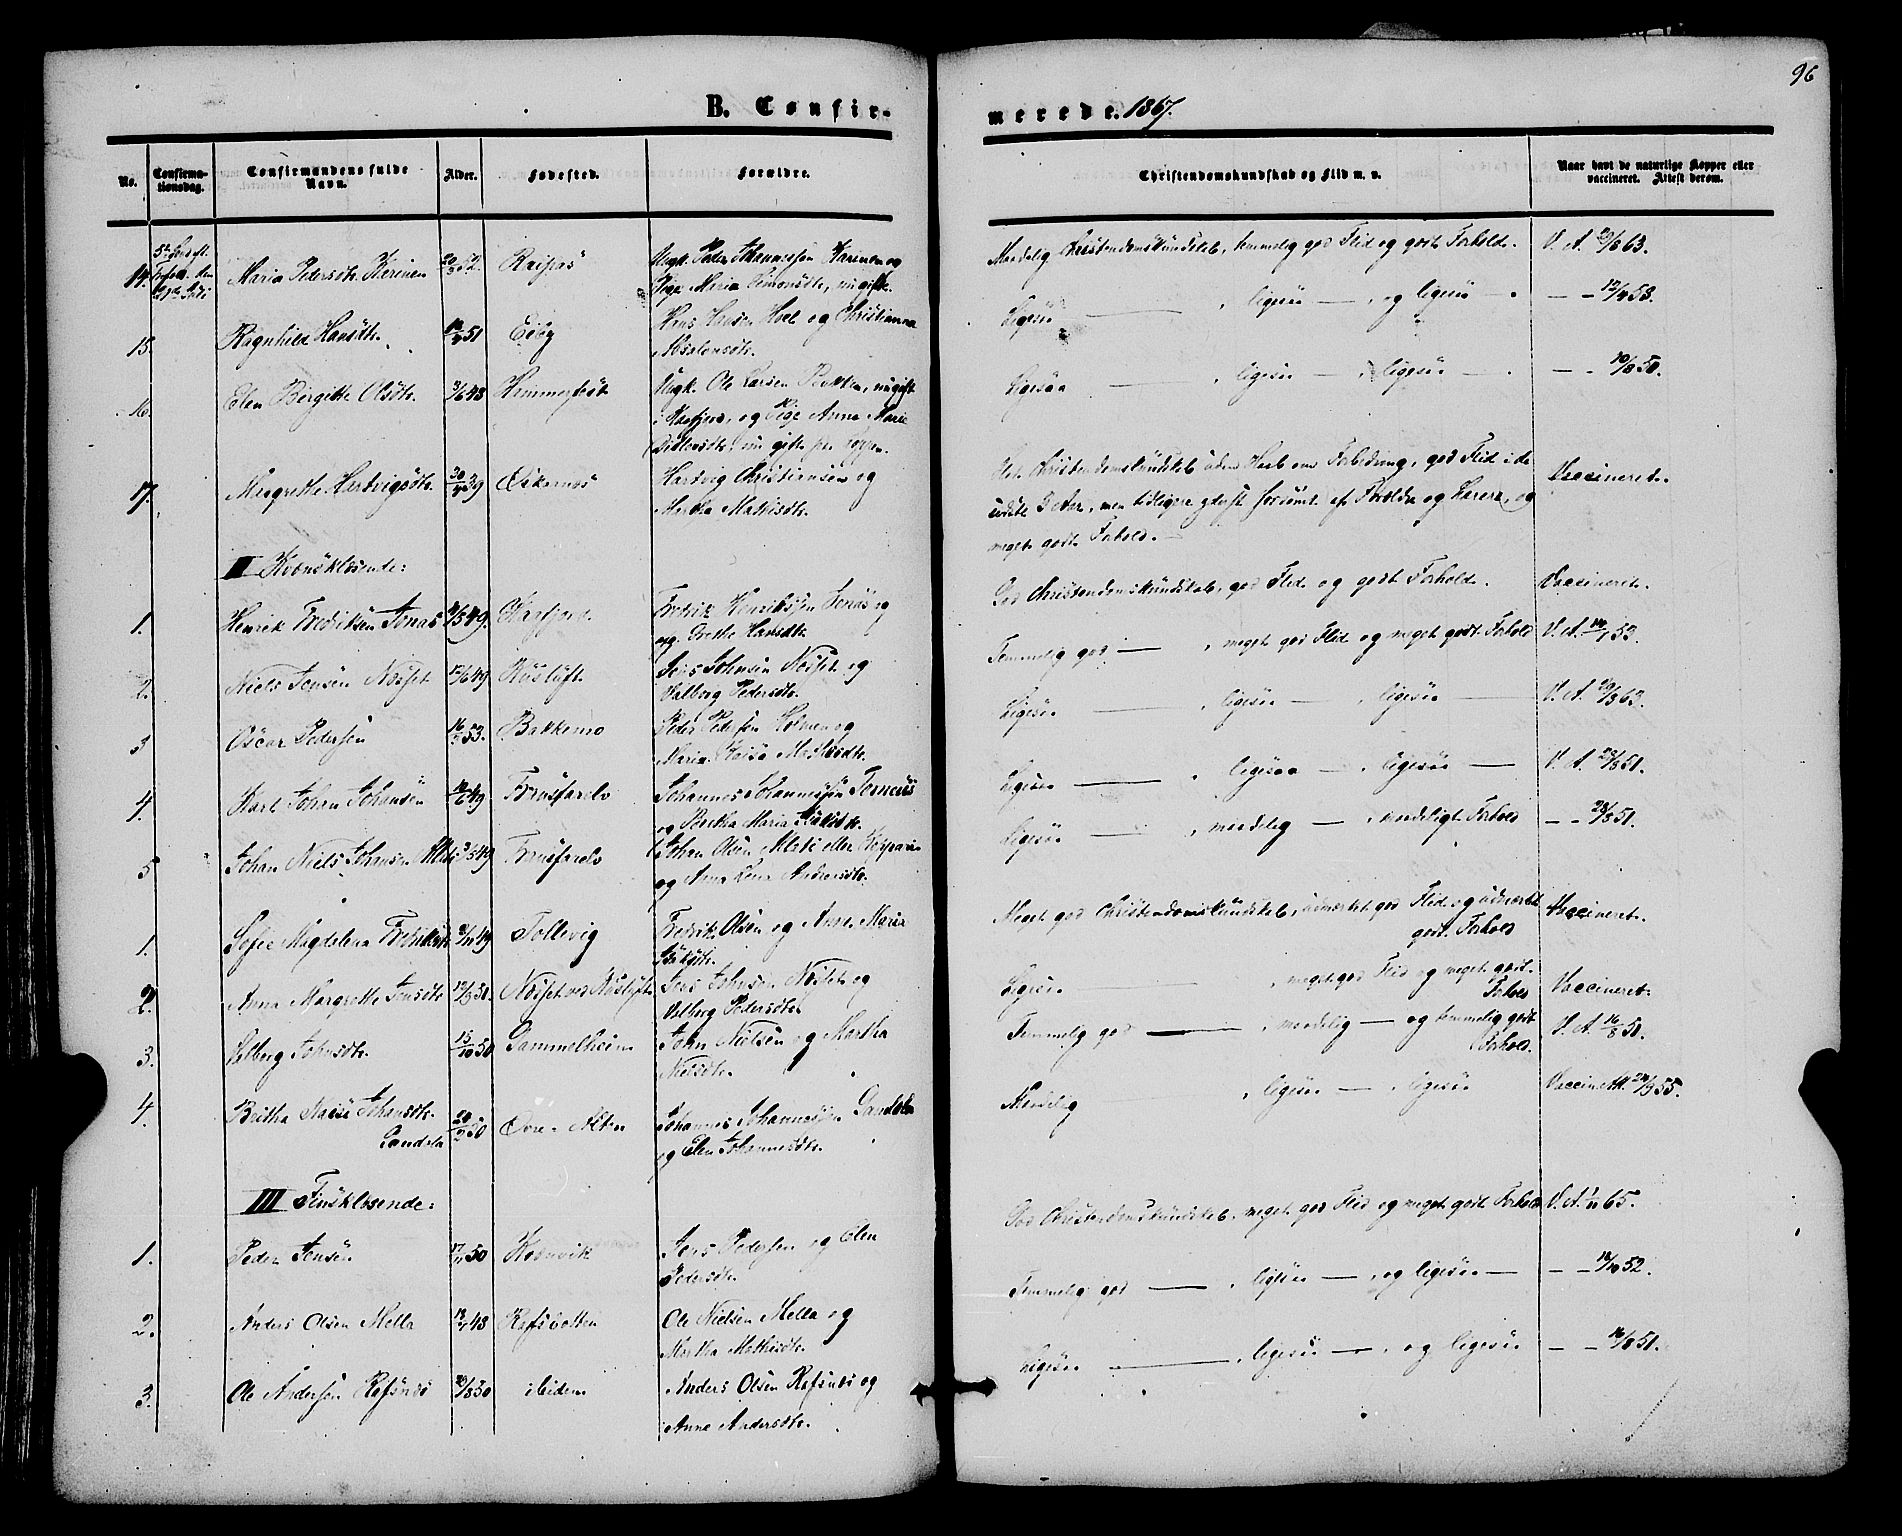 96
B. Confir-
merede. 1867.
No.
Confirma-
tionsdag.
Confirmandens fulde
Navn.
Alder.
Fødested.
Forældre.
Christendomskundskab og Flid m. v.
Naar havt de naturlige Kopper eller
vaccineret. Attest derom.
14. Maria Pedersdtr. Kerinen 52. Raipas Ungk. Peder Johannessen Karinen og
Pige Maria Simonsdtr., ugifte.
Maadelig Christendomskundskab, temmelig god Flid og godt Forhold. V. A. 20/8 63.
15. Ragnhild Hansdtr. 51 Eiby Hans Hansen Hoel og Christianna
Absalonsdtr.
Ligesaa — , ligesaa — , og ligesaa — . — - 12/4 53.
16. Elen Birgitte Olsdtr. 3/6 48 Hammerfest Ungk. Ole Larsen Bakken, ugift
i Kaafjord, og Pige Anna Marie
ugifte
Ligesaa — , ligesaa — , ligesaa — . — - 10/8 50.
17. Margrethe Hartvigsdtr. 39 Oskarnes Hartvig Christiansen og
Martha Mathisdtr.
Christendomskundskab uden Haab om Forbedring, god Flid i de
sidste Aar, men tidligere forsømt af Forældre og Lærere, og
meget godt Forhold. —
Vaccineret.
II Kvænskløsende:
1. Henrik Fredriksen Jonas 49. Kaafjord. Fredrik Henriksen Jonas og
Grethe Hansdtr.
God Christendomskundskab, god Flid og godt Forhold. Vaccineret.
2. Niels Jensen Næset 12/6 49 Russeluft Jens Johnsen Næset og
Valborg Pedersdtr.
Temmelig god — , meget god Flid og meget godt Forhold V. A. 53.
3 Oscar Pedersen 53. Bakkemo Peder Pedersen Holmen og
Maria Kaisa Mathisdtr.
Ligesaa — , ligesaa — , ligesaa — V. A. 20/8 63.
4. Karl Johan Johansen 49. Trusfarelv Johannes Johannesen Torneus
og Breta Maria Isaksdtr.
Ligesaa — , ligesaa — , ligesaa — V. A. 28/8 51.
5 Johan Niels Johnsen 49 Trusfarelv Johan Olsen eller
og Anna Lena Andersdtr.
Ligesaa — , maadelig — , maadeligt Forhold — - 28/8 51.
1. Sofie Magdelena Fredriksdtr. 49 Tollevig Fredrik Olsen og Anne Maria
Isaksdtr.
Meget god Christendomskundskab, udmærket god Flid og udmærket
godt Forhold
Vaccineret.
2. Anna Margrethe Jensdtr. 50. Næset ved Russeluft Jens Johnsen Næset og
Valborg Pedersdtr.
Ligesaa — , meget god Flid og meget godt
Forhold
Vaccineret.
3. Valborg Johnsdtr. 15/10 50 Gammelheim John Nielsen og Martha
Nielsdtr.
Temmelig god — , maadelig — og temmelig godt
Forhold.
V. A. 16/8 50.
4. Britha Kaisa Johansdtr.
Sandela
50 Øvre-Alten Johannes Johannesen Sandela
og Elen Johannesdtr.
Maadelig , ligesaa — , ligesaa Vaccin. Att. 24/9 55.
III Finskløsende:
1. Peder Jensen 50 Kvænvik Jens Pedersen og Elen
Pedersdtr.
God Christendomskundskab, meget god Flid og meget godt Forhold V. A. 1/11 65.
2. Anders Olsen Mella 48 Rafsbotten Ole Nielsen Mella og
Martha Mathisdtr.
Temmelig god — , ligesaa — , og ligesaa — — - 18/10 52.
3. Ole Andersen Rafsnes 50 ibidem Anders Olsen Rafsnes og
Anne Andersdtr.
Ligesaa — , ligesaa — , og ligesaa — - 16/8 51.